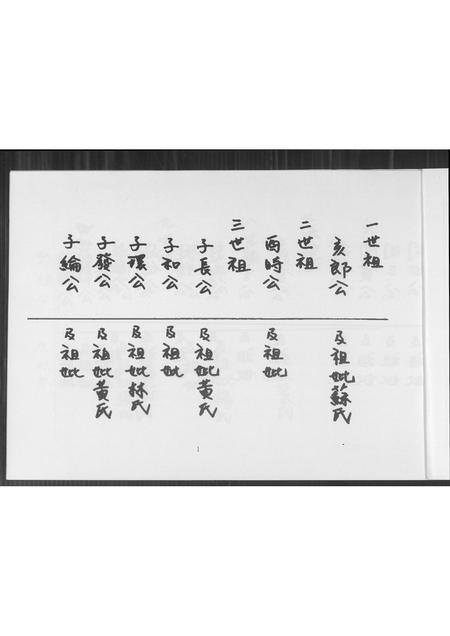 一世祖
亥郎公
及祖妣蘇氏
二世祖
酉時公
及祖妣
三世祖
子長公
及祖妣黃氏
子和公
及祖妣
子環公
及祖妣林氏
子發公
及祖妣黃氏
子綸公
及祖妣
1